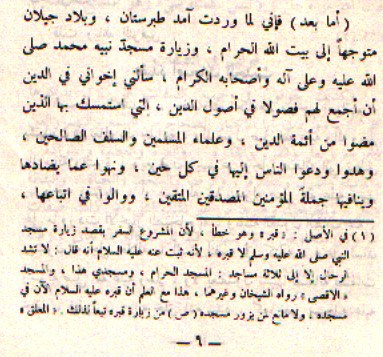 ( أما بعد ) فإني لما وردت آمد طبرستان ، وبلاد جيلان
متوجهاً إلى بيت الله الحرام ، وزيارة مسجد نبيه محمد صلى
الله عليه وعلى آله وأصحابه الكرام ، سألني إخواني في الدين
أن أجمع لهم فصولا في أصول الدين ، التي استمسك بها الذين
مضوا من أئمة الدين ، وعلماء المسلمين والسلف الصالحين ،
وهدوا ودعوا الناس إليها في كل حين ، ونهوا عما يضادها
وينافيها جملة المؤمنين المصدقين المتقين ، ووالوا في اتباعها ،
(١) في الأصل : « قبره » وهو خطأ ، لأن المشروع السفر بقصد زيارة مسجد
النبي صلى الله عليه وسلم لا قبره ، لأنه ثبت عنه عليه السلام أنه قال : لا تشد
الرحال إلا إلى ثلاثة مساجد : المسجد الحرام ، ومسجدي هذا ، والمسجد
« الاقصى » رواه الشيخان وغيرهما ، هذا مع العلم أن قبره عليه السلام الآن في
مسجده ، ولا مانع لمن يزور مسجده (ص) من زيارة قبره تبعاً لذلك . « المعلق »
— ٦ —